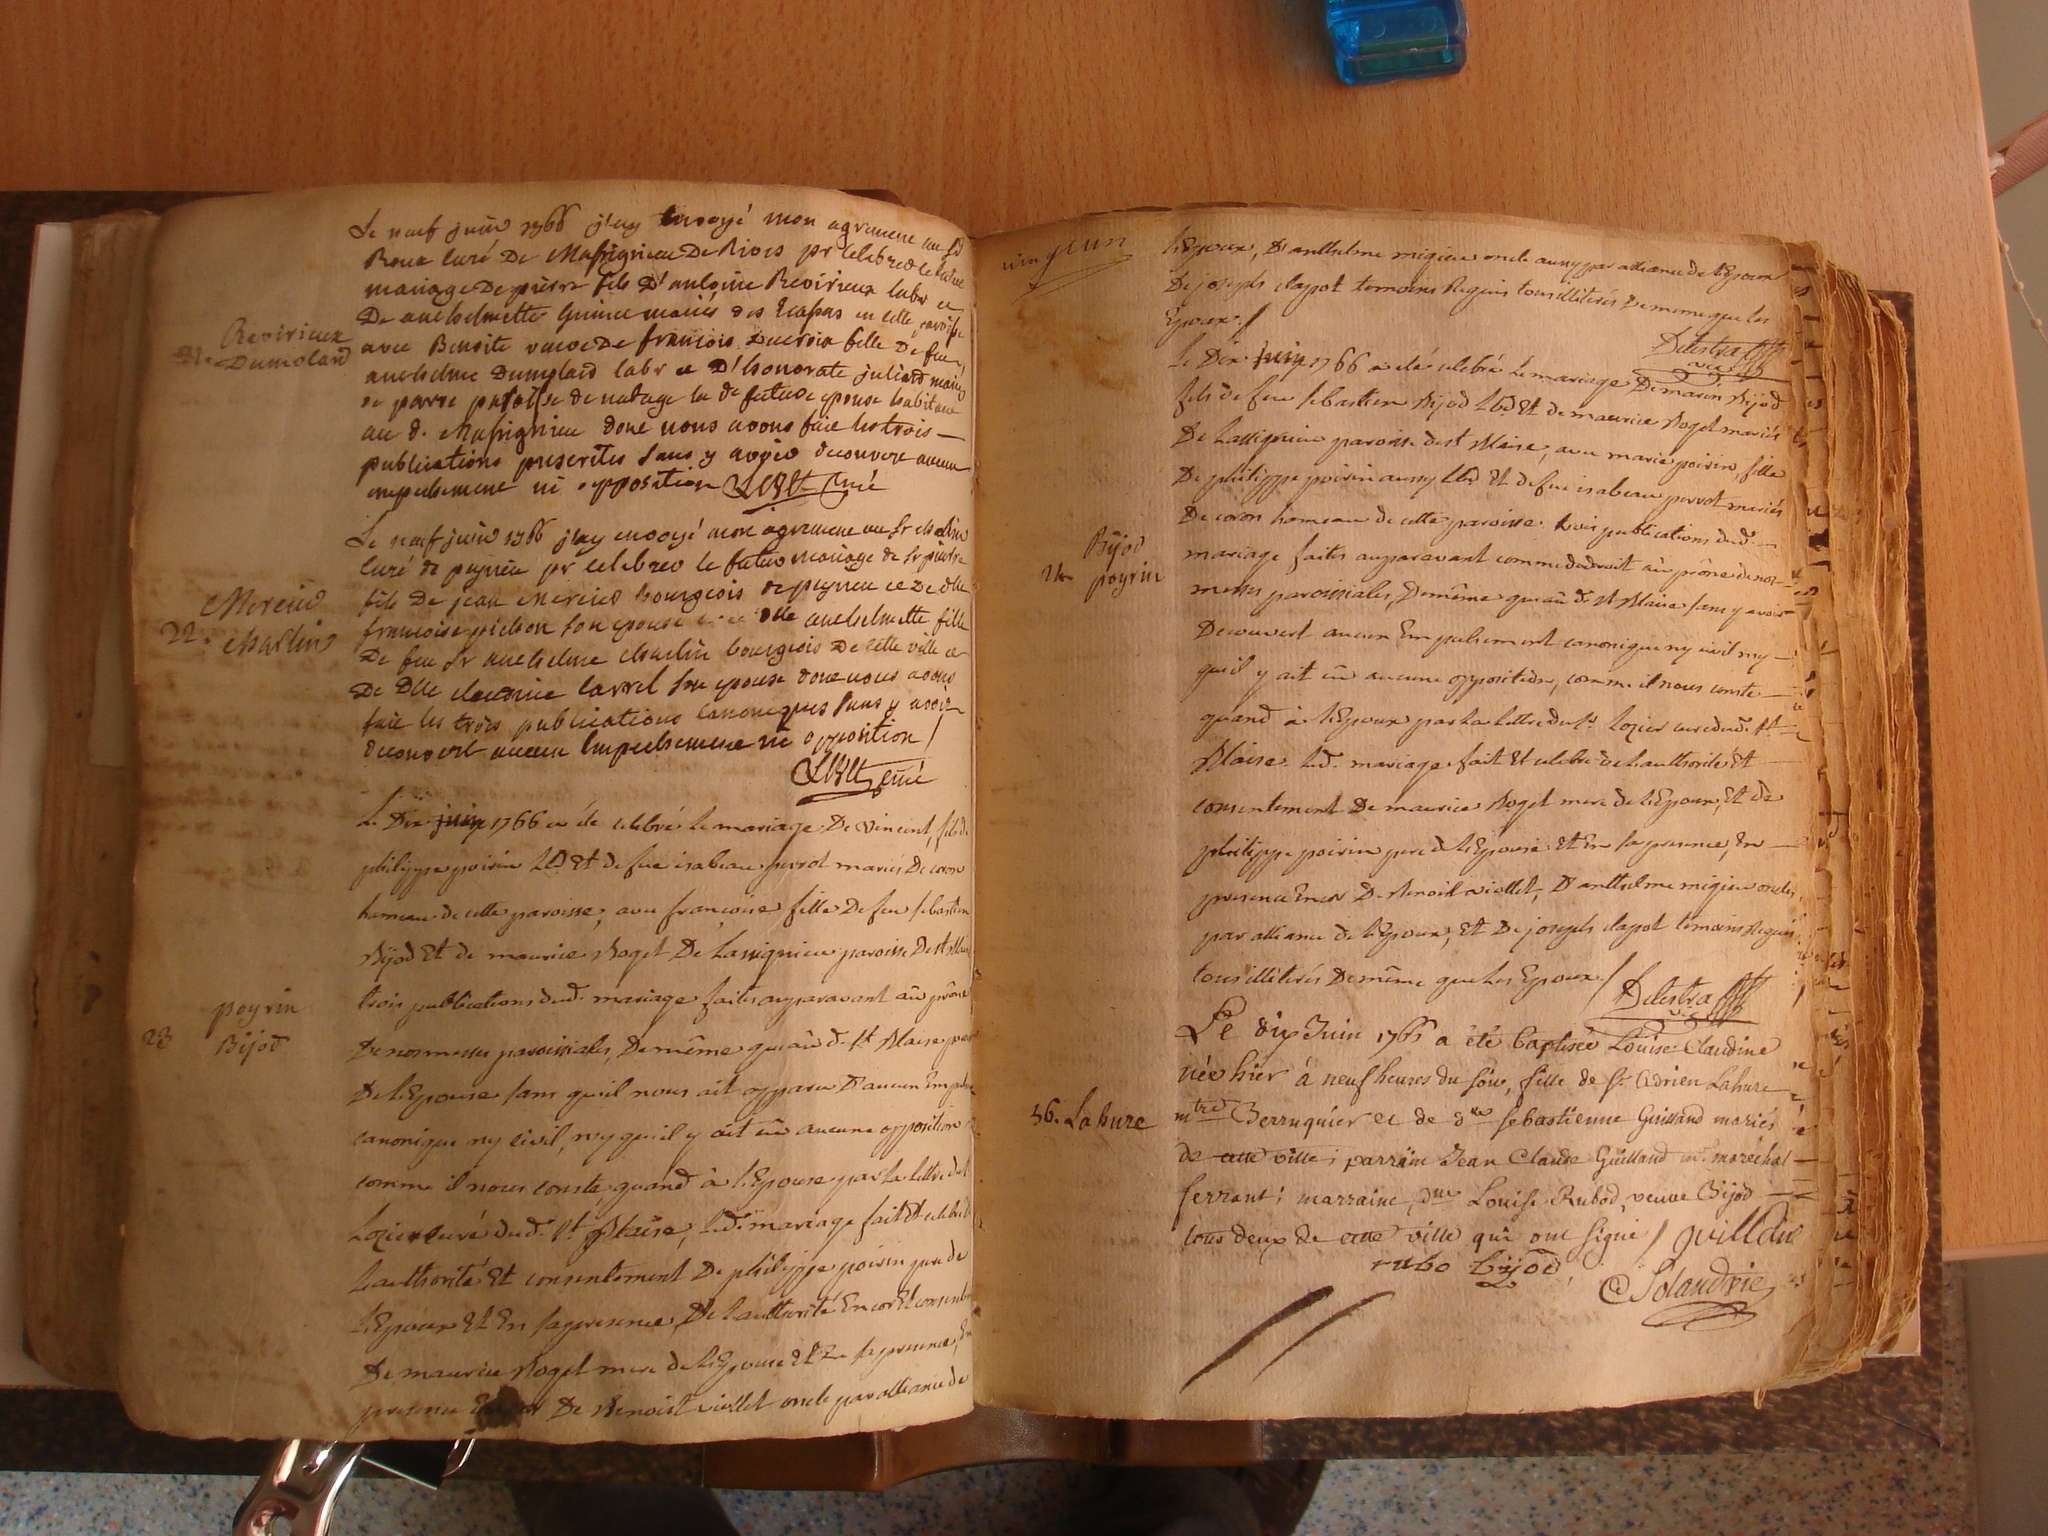 Le neuf juin 1766 j'ay envoyé mon agrement au Sr
Roux curé De Massignieu De Rives pr celebrer le futur
mariage De pierre fils D'antoine Revirieux labr et
De anthelmette Guinet mariés des Ecassas en cette paroisse
avec Benoite veuve De francois Ducroix fille De feu
anthelme Dumolard labr et D'honorate juliard mariés
de parve paroisse de nattage la de future epouse habitant
au d. Massignieu dont nous avons fait les trois
publications prescrites sans y avoir decouvert aucun
empechement ni opposition curé
Revirieux
21. Dumolard
Le neuf juin 1766 j'ay envoyé mon agrement au Sr Martin
curé de peyrieu pr celebrer le futur mariage de Sr pierre
fils De jean Mercier bourgeois de peyrieu et De dlle
francoise pichon son epouse et Dlle anthelmette fille
De feu Sr anthelme Martin bourgeois De cette ville et
De Dlle Laurel son epouse dont nous avons
fait les trois publications canoniques sans y avoir
decouvert aucun Empechement ni opposition /
curé
22. Martin
Le Dix juin 1766 a été celebré le mariage De Vincent, fils de
philippe poirin Lbr Et de feue isabeau perrot mariés De coron
hameau de cette paroisse, avec françoise fille De feu sebastien
Bijod Et de maurice Roget De Lassignieu paroisse De st Blaise
trois publications dud. mariage faites auparavant au prône
De nos messes paroissiales, De même qu'au d. St Blaise paroisse
De L'Epouse sans qu'il nous ait apparu D'aucun Empechement
canonique ny civil, ny qu'il y ait eu aucune opposition
comme il nous conste quand à L'Epouse par la lettre du Sr
Lozier curé dud. St Blaise, Led. mariage fait Et celebré de
L'authorité Et consentement De philippe poirin pere de
L'Epoux Et En sa presence, De L'authorité Encor Et consentement
De maurice Roget mere de L'Epouse Et En sa presence, En
presence Encor De Benoist viollet oncle par alliance de
poyrin
23 Bijod
vingt un
L'Epoux, D'anthelme migieu oncle aussy par alliance de L'Epoux
De joseph clapot temoins Requis tous illiterés De meme que les
Epoux. /
Delestra
Le Dix juin 1766 a été celebré Le mariage De maron Bijod
fils de feu sebastien Bijod Lbr Et de maurice Roget mariés
De Lassignieu paroisse de st Blaise, avec marie poirin, fille
De philippe poirin aussy Lbr Et de feue isabeau perrot mariés
De coron hameau de cette paroisse. trois publications dud.
mariage faites auparavant comme de droit au prône de nos
messes paroissiales, De même qu'au d. St Blaise sans y avoir
Decouvert aucun Empechement canonique ny civil ny
qu'il y ait eu aucune opposition, comme il nous conste
quand à L'Epoux par la Lettre du Sr Lozier curé dud. St
Blaise. Led. mariage fait Et celebré de L'authorité Et
consentement De maurice Roget mere de L'Epoux, Et de
philippe poirin pere de L'Epouse Et En sa presence, En
presence Encor De Benoist viollet, D'anthelme migieu oncles
par alliance de L'Epoux, Et De joseph clapot temoins Requis
tous illiterés De même que Les Epoux. / Delestra
Bijod
24 poyrin
Le dix Juin 1766 a été baptisée Louise Claudine
née hier à neuf heures du soir, fille de Sr Adrien Lahure
mtre Perruquier et de dlle sebastienne Guilland mariés
de cette ville; parrain Jean Claude Guilland mtre maréchal
ferrant; marraine, dme Louise Rubod, veuve Bijod
tous deux de cette ville qui ont signé /
rubo bijod
56. Lahure